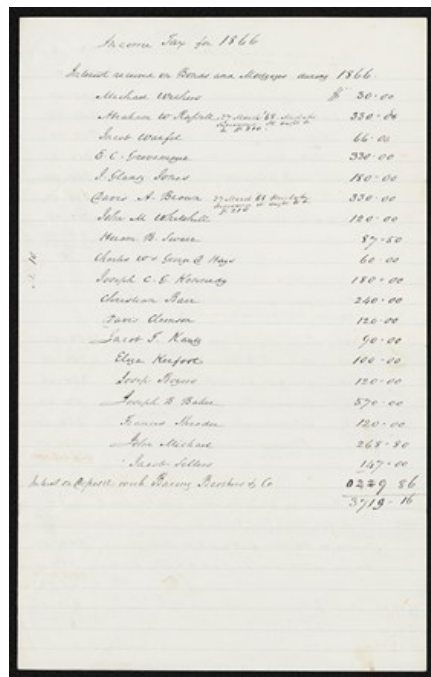 Income Tax for 1866
Interest received on Bonds and Mortgages during 1866.
Michael Withers $ 30.00
Abraham W 27 March 68 330.00
Jacob 66.00
E. C. 330.00
J. Glancy Jones 180.00
Davis A. Brown 27 March 68 330.00
John M Whitehill 120.00
Hiram B. Swarr 87.50
Charles W & George Hays 60.00
Joseph C. G. Kennedy 180.00
Christian Bair 240.00
Davis Clemson 120.00
Jacob F. Kautz 90.00
Eliza Kerfoot 100.00
Joseph Rogers 120.00
Joseph B. Baker 570.00
Francis 120.00
John Michael 268.80
Jacob Sellers 147.00
Deposit with Brothers & Co 0229 86
3719.16